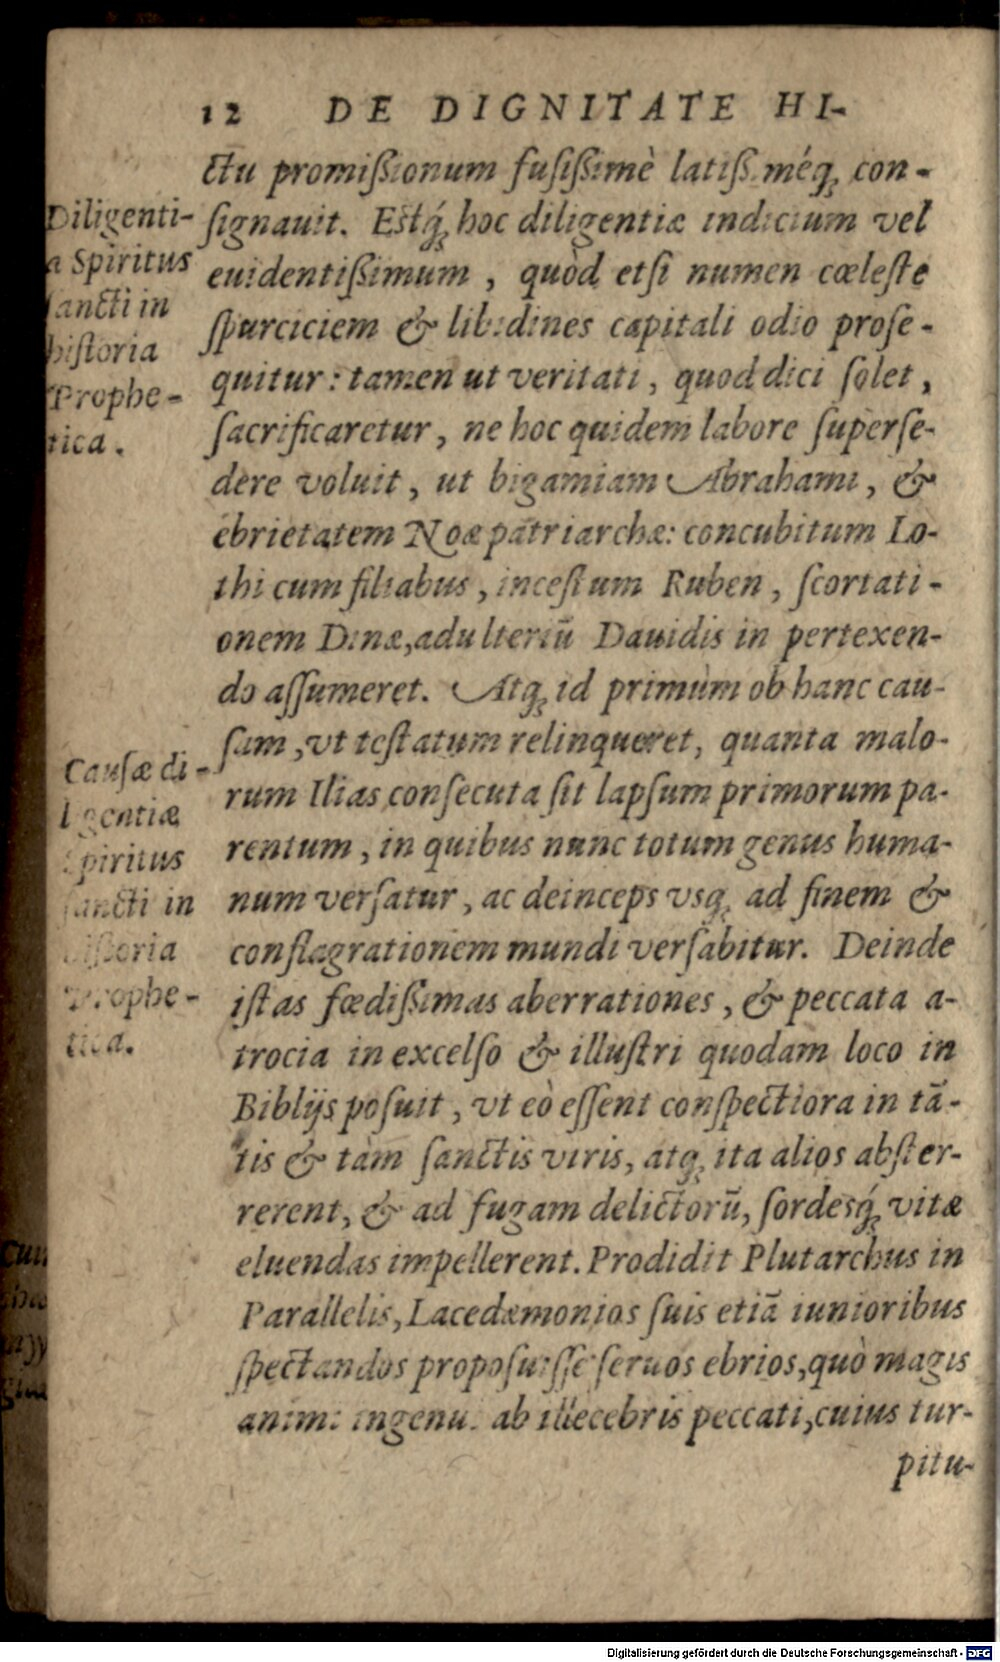 12 DE DIGNITATE HI-
ctu promißionum fusißimè latiß.méq́ꝫ con-
signauit. Estq́ꝫ hoc diligentiæ indicium vel
euidentißimum, quòd etsi numen cœleste
spurciciem & libidines capitali odio prose-
quitur: tamen ut veritati, quod dici solet,
sacrificaretur, ne hoc quidem labore superse-
dere voluit, ut bigamiam Abrahami, &
ebrietatem Noæ patriarchæ: concubitum Lo-
thi cum filiabus, incestum Ruben, scortati-
onem Dinæ, adulteriũ Dauidis in pertexen-
do assumeret. Atqꝫ id primùm ob hanc cau-
sam, vt testatum relinqueret, quanta malo-
rum Ilias consecuta sit lapsum primorum pa-
rentum, in quibus nunc totum genus huma-
num versatur, ac deinceps vsqꝫ ad finem &
conflagrationem mundi versabitur. Deinde
istas fœdißimas aberrationes, & peccata a-
trocia in excelso & illustri quodam loco in
Biblijs posuit, vt eò essent conspectiora in tã-
tis & tàm sanctis viris, atqꝫ ita alios abster-
rerent, & ad fugam delictorũ, sordesq́ꝫ vitæ
eluendas impellerent. Prodidit Plutarchus in
Parallelis, Lacedæmonios suis etiã iunioribus
spectandos proposuisse seruos ebrios, quò magis
animi ingenui ab illecebris peccati, cuius tur-
pitu-
Diligenti-
a Spiritus
sancti in
historia
Prophe-
tica.
Causæ di-
ligentiæ
Spiritus
sancti in
historia
Prophe-
tica.
Digitalisierung gefördert durch die Deutsche Forschungsgemeinschaft - DFG